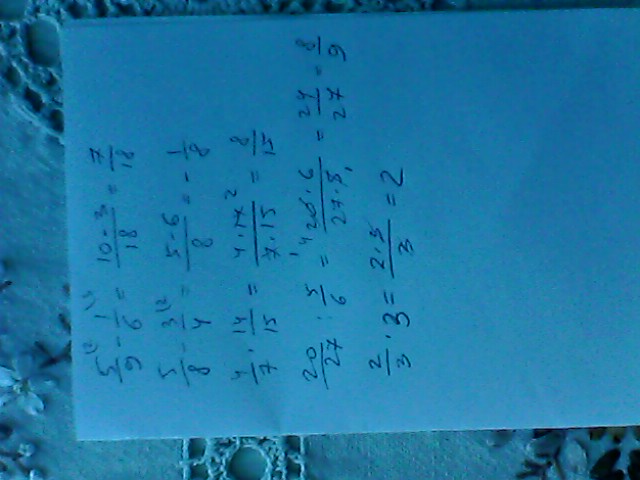 5/9⁽² - 1/6⁽³ = 10-3/18 = 7/18
5/8 - 3/4⁽² = 5-6/8 = -1/8
4/7 · 14/15 = 4·14²/₁7·15 = 8/15
20/27 : 5/6 = ⁴20·6/27·5₁ = 24/27 = 8/9
2/3 · 3 = 2·3/3 = 2